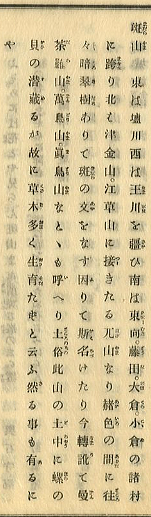 斑山　東は塩川西は玉川を疆ひ南は東向藤田大倉小倉の諸村
に跨り北も津金山江草山に接きたる兀山なり赭色の間に往
々暗翠樹ありて斑の文をなす因りて斯名けたり今轉訛て曼
荼羅山萬鳥山眞鳥山なとゝも呼へり土俗此山の土中に螺の
貝の潜蔵るが故に草木多く生育たずと云ふ然る事も有るに
や